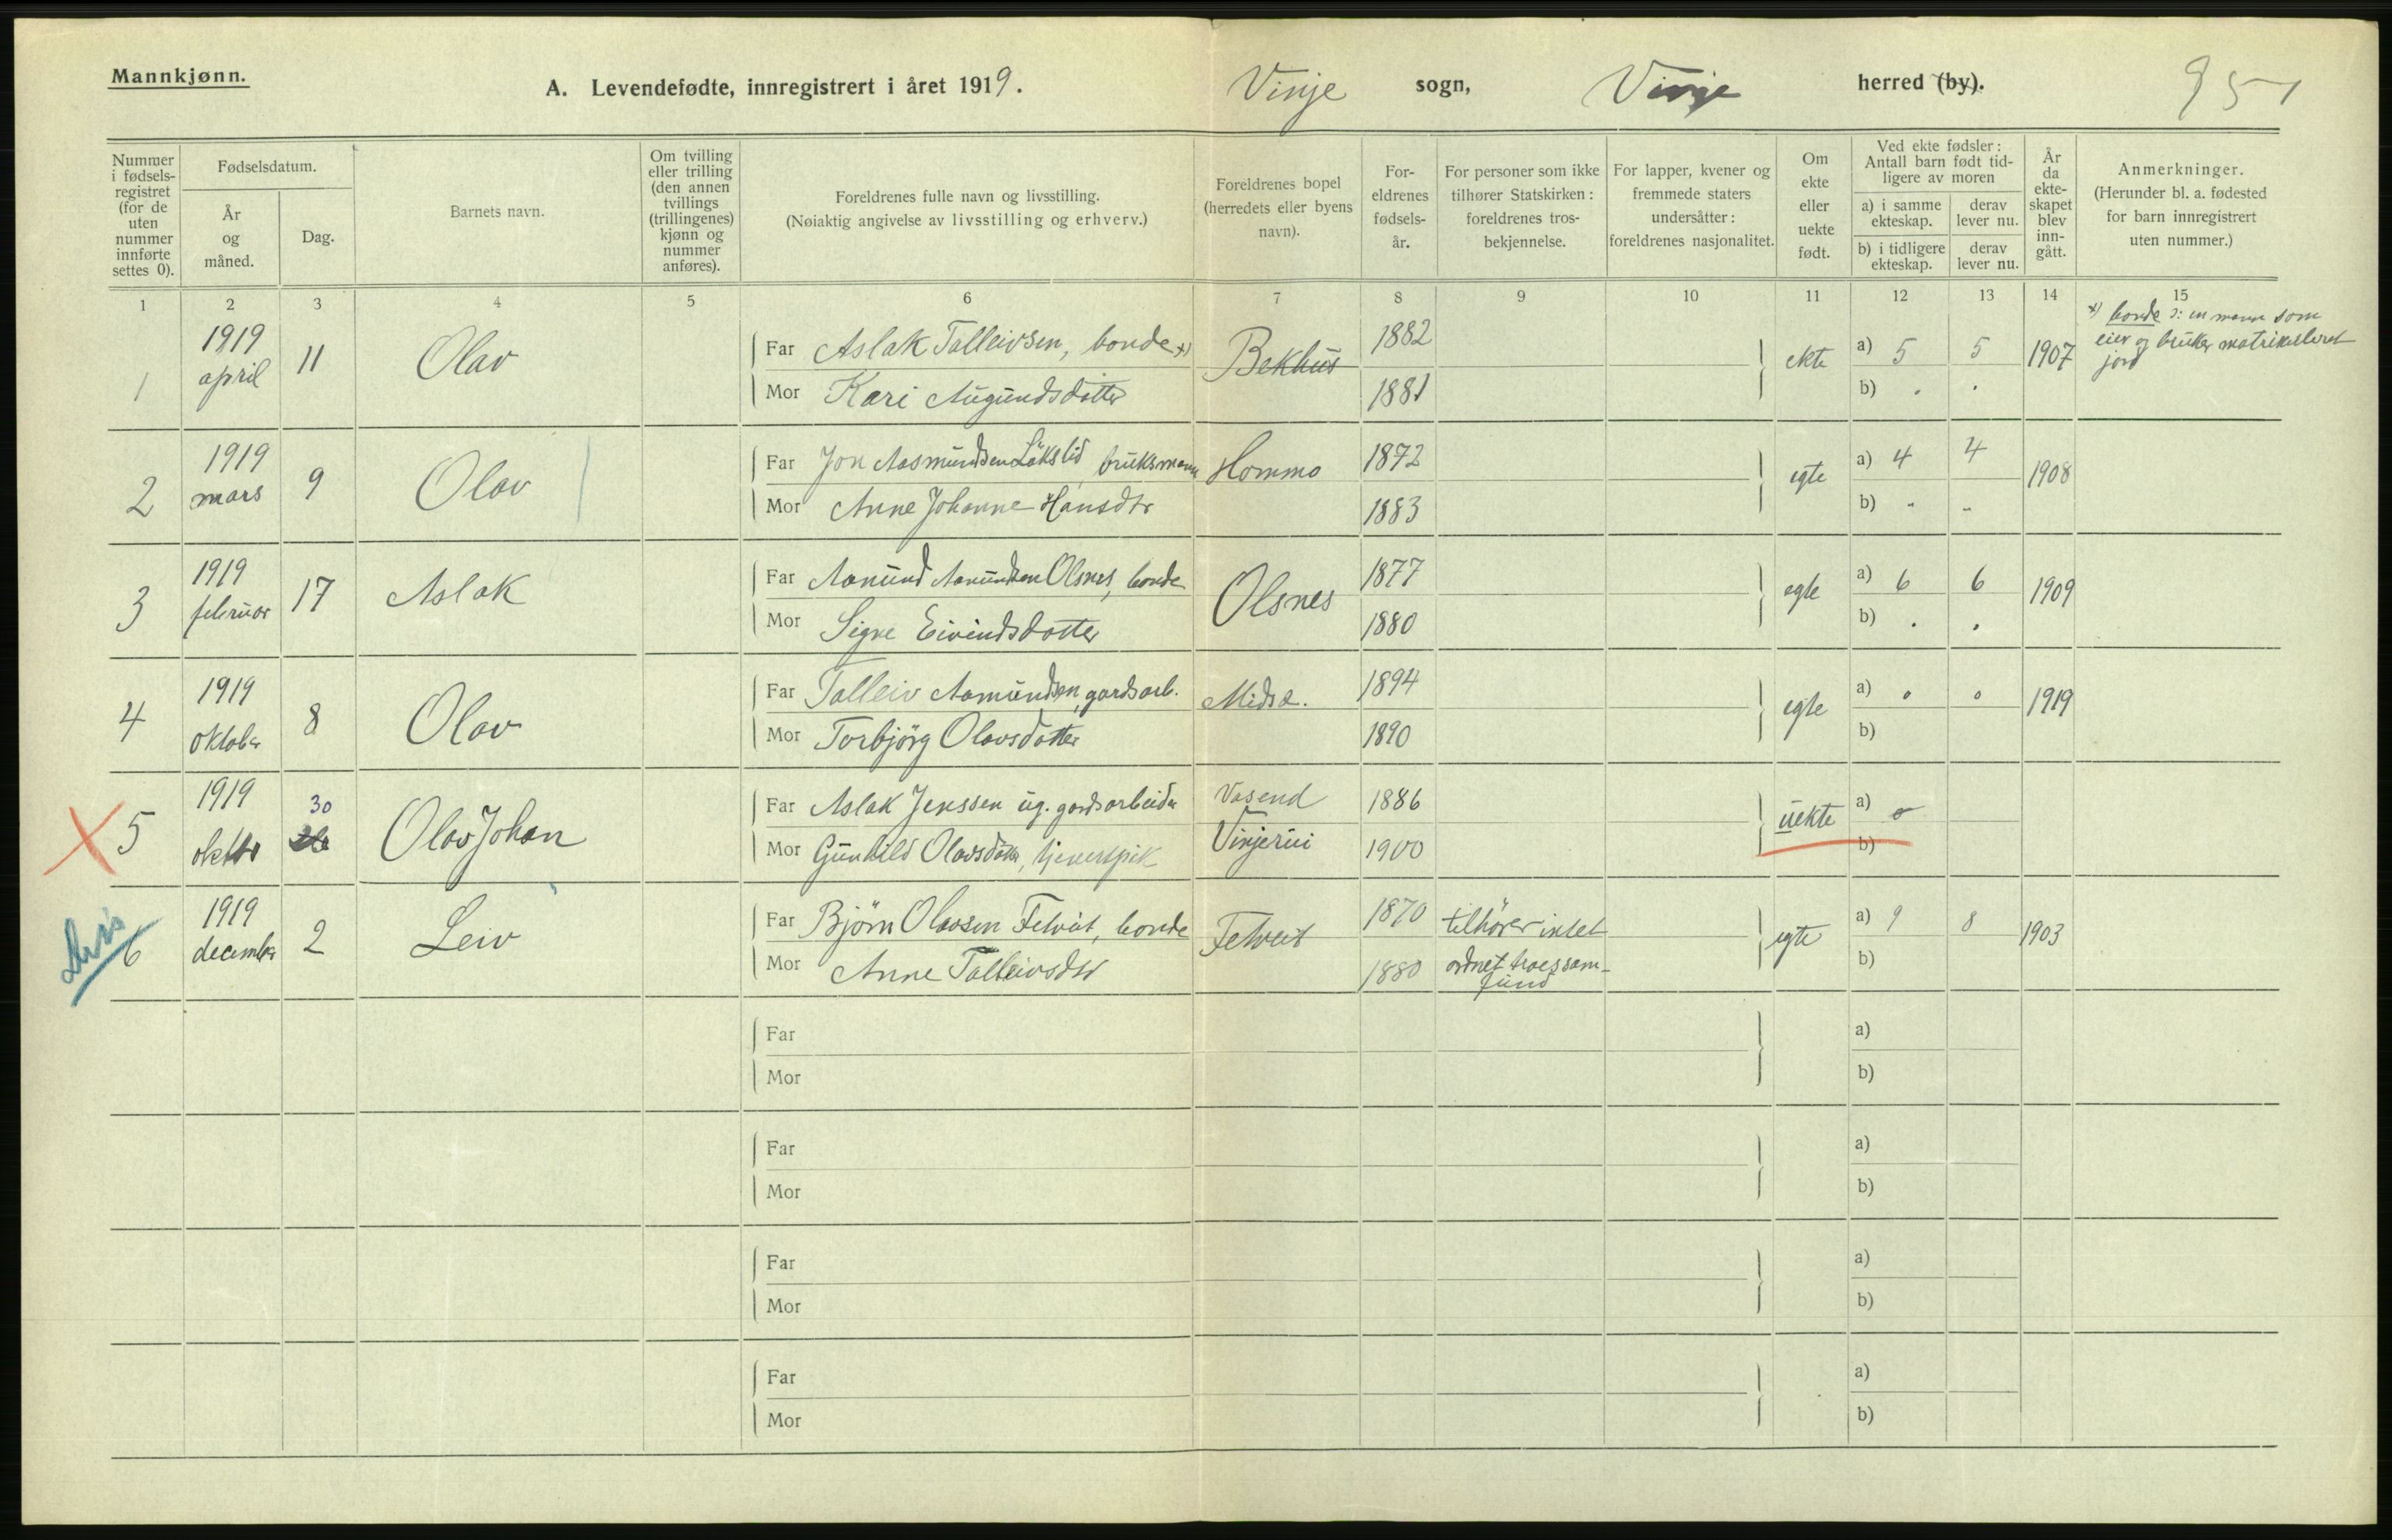 Mannkjønn.
A. Levendefødte, innregistrert i året 1919.
Vinje sogn, Vinje herred (by).
951
Nummer i fødsels-registret (for de uten nummer innførte settes 0).
Fødselsdatum.
År og måned.
Dag.
Barnets navn.
Om tvilling eller trilling (den annen tvillings (trillingenes) kjønn og nummer anføres).
Foreldrenes fulle navn og livsstilling.
(Nøiaktig angivelse av livsstilling og erhverv.)
Foreldrenes bopel (herredets eller byens navn).
For-eldrenes fødsels-år.
For personer som ikke tilhører Statskirken: foreldrenes tros-bekjennelse.
For lapper, kvener og fremmede staters undersåtter: foreldrenes nasjonalitet.
Om ekte eller uekte født.
Ved ekte fødsler: Antall barn født tid-ligere av moren
a) i samme ekteskap.
derav lever nu.
b) i tidligere ekteskap.
derav lever nu.
År da ekte-skapet blev inn-gått.
Anmerkninger.
(Herunder bl. a. fødested for barn innregistrert uten nummer.)
1 2 3 4 5 6 7 8 9 10 11 12 13 14 15
1 1919 april 11 Olav
Far Aslak Talleivsen, bonde x) Bekhus 1882 ekte a) 5 5 1907
Mor Kari Augundsdotter 1881 b) . .
x) bonde ɔ: en mann som
eier og bruker matrikulert
jord
2 1919 mars 9 Olav
Far Jon Aasmundsen Lökslid bruksmann Hommo 1872 egte a) 4 4 1908
Mor Anne Johanne Hansdtr 1883 b) - -
3 1919 februar 17 Aslak
Far Aanund Aanundsen Olsnes, bonde Olsnes 1877 egte a) 6 6 1909
Mor Signe Eivindsdotter 1880 b) . .
4 1919 oktober 8 Olav
Far Talleiv Aamundsen, gardsarb. Midsæ. 1894 egte a) 0 0 1919
Mor Torbjörg Olavsdotter 1890 b)
5 1919 oktbr 30 Olav Johan
Far Aslak Jenssen ug. gardsarbeider Vasend 1886 uekte a) 0
Mor Gunhild Olavsdotter, tjenestpik Vinjerui 1900 b)
6 1919 december 2 Leiv
Far Björn Olavsen Fetveit, bonde Fetveit 1870 tilhörer intet egte a) 9 8 1903
Mor Anne Talleivsdtr 1880 ordnet troessam- b)
fund
Far a)
Mor b)
Far a)
Mor b)
Far a)
Mor b)
Far a)
Mor b)